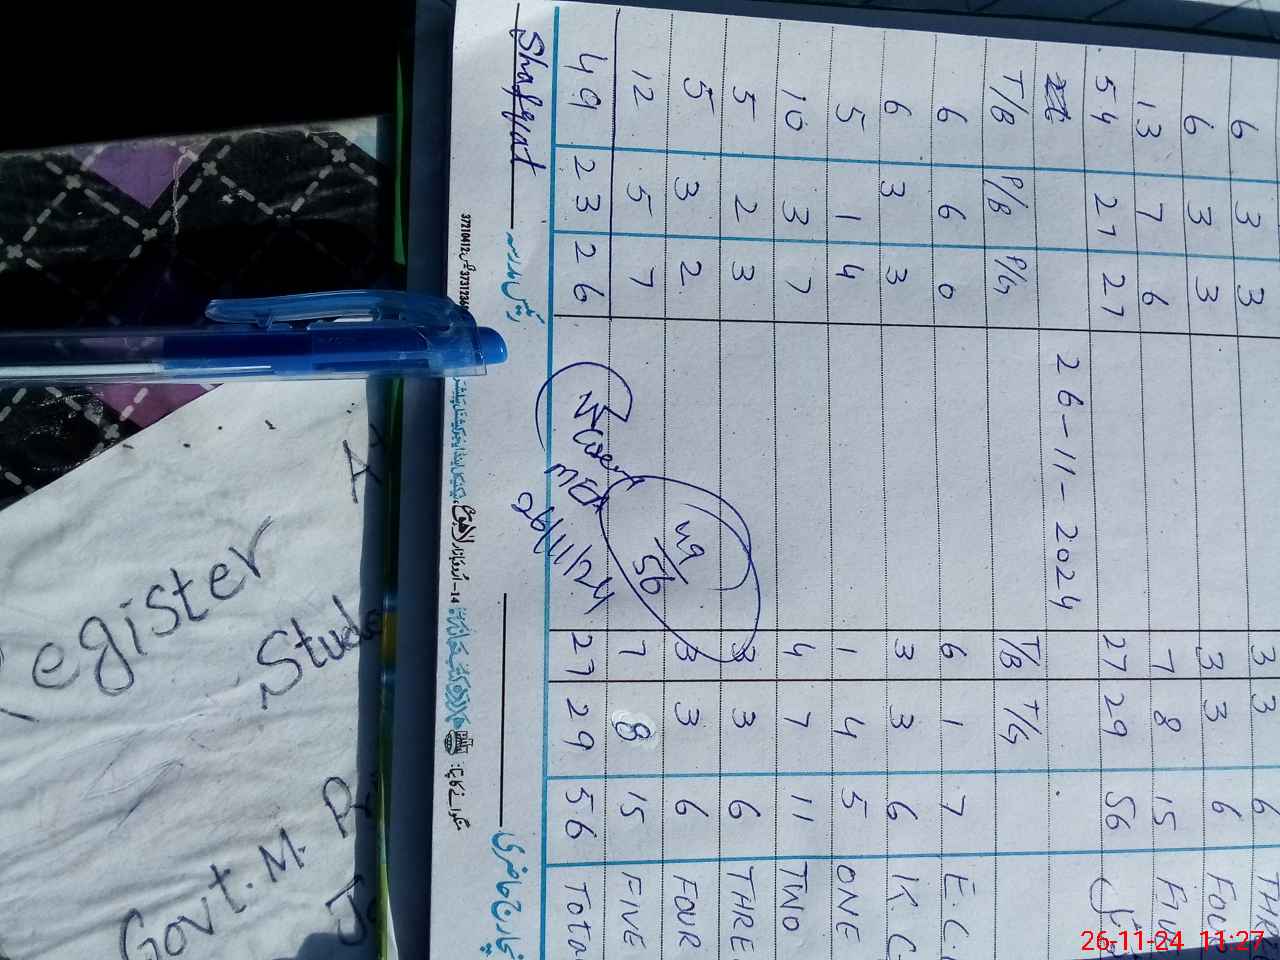 6 3 3 3 3 6 THRE
6 3 3 3 3 6 FOU
13 7 6 7 8 15 FIVE
54 27 27 27 29 56
26-11-2024
T/B P/B P/G T/B T/G
6 6 0 6 1 7 E.C.
6 3 3 3 3 6 K.C
5 1 4 1 4 5 ONE
10 3 7 4 7 11 TWO
5 2 3 3 3 6 THRE
5 3 2 3 3 6 FOUR
12 5 7 7 8 15 FIVE
49 23 26 27 29 56 Tota
49
56
MEA
26/11/24
Shafqat رئیس مدرسہ
انچارج حاضری
A
Register
Stude
Govt. M. P
26-11-24 11:27